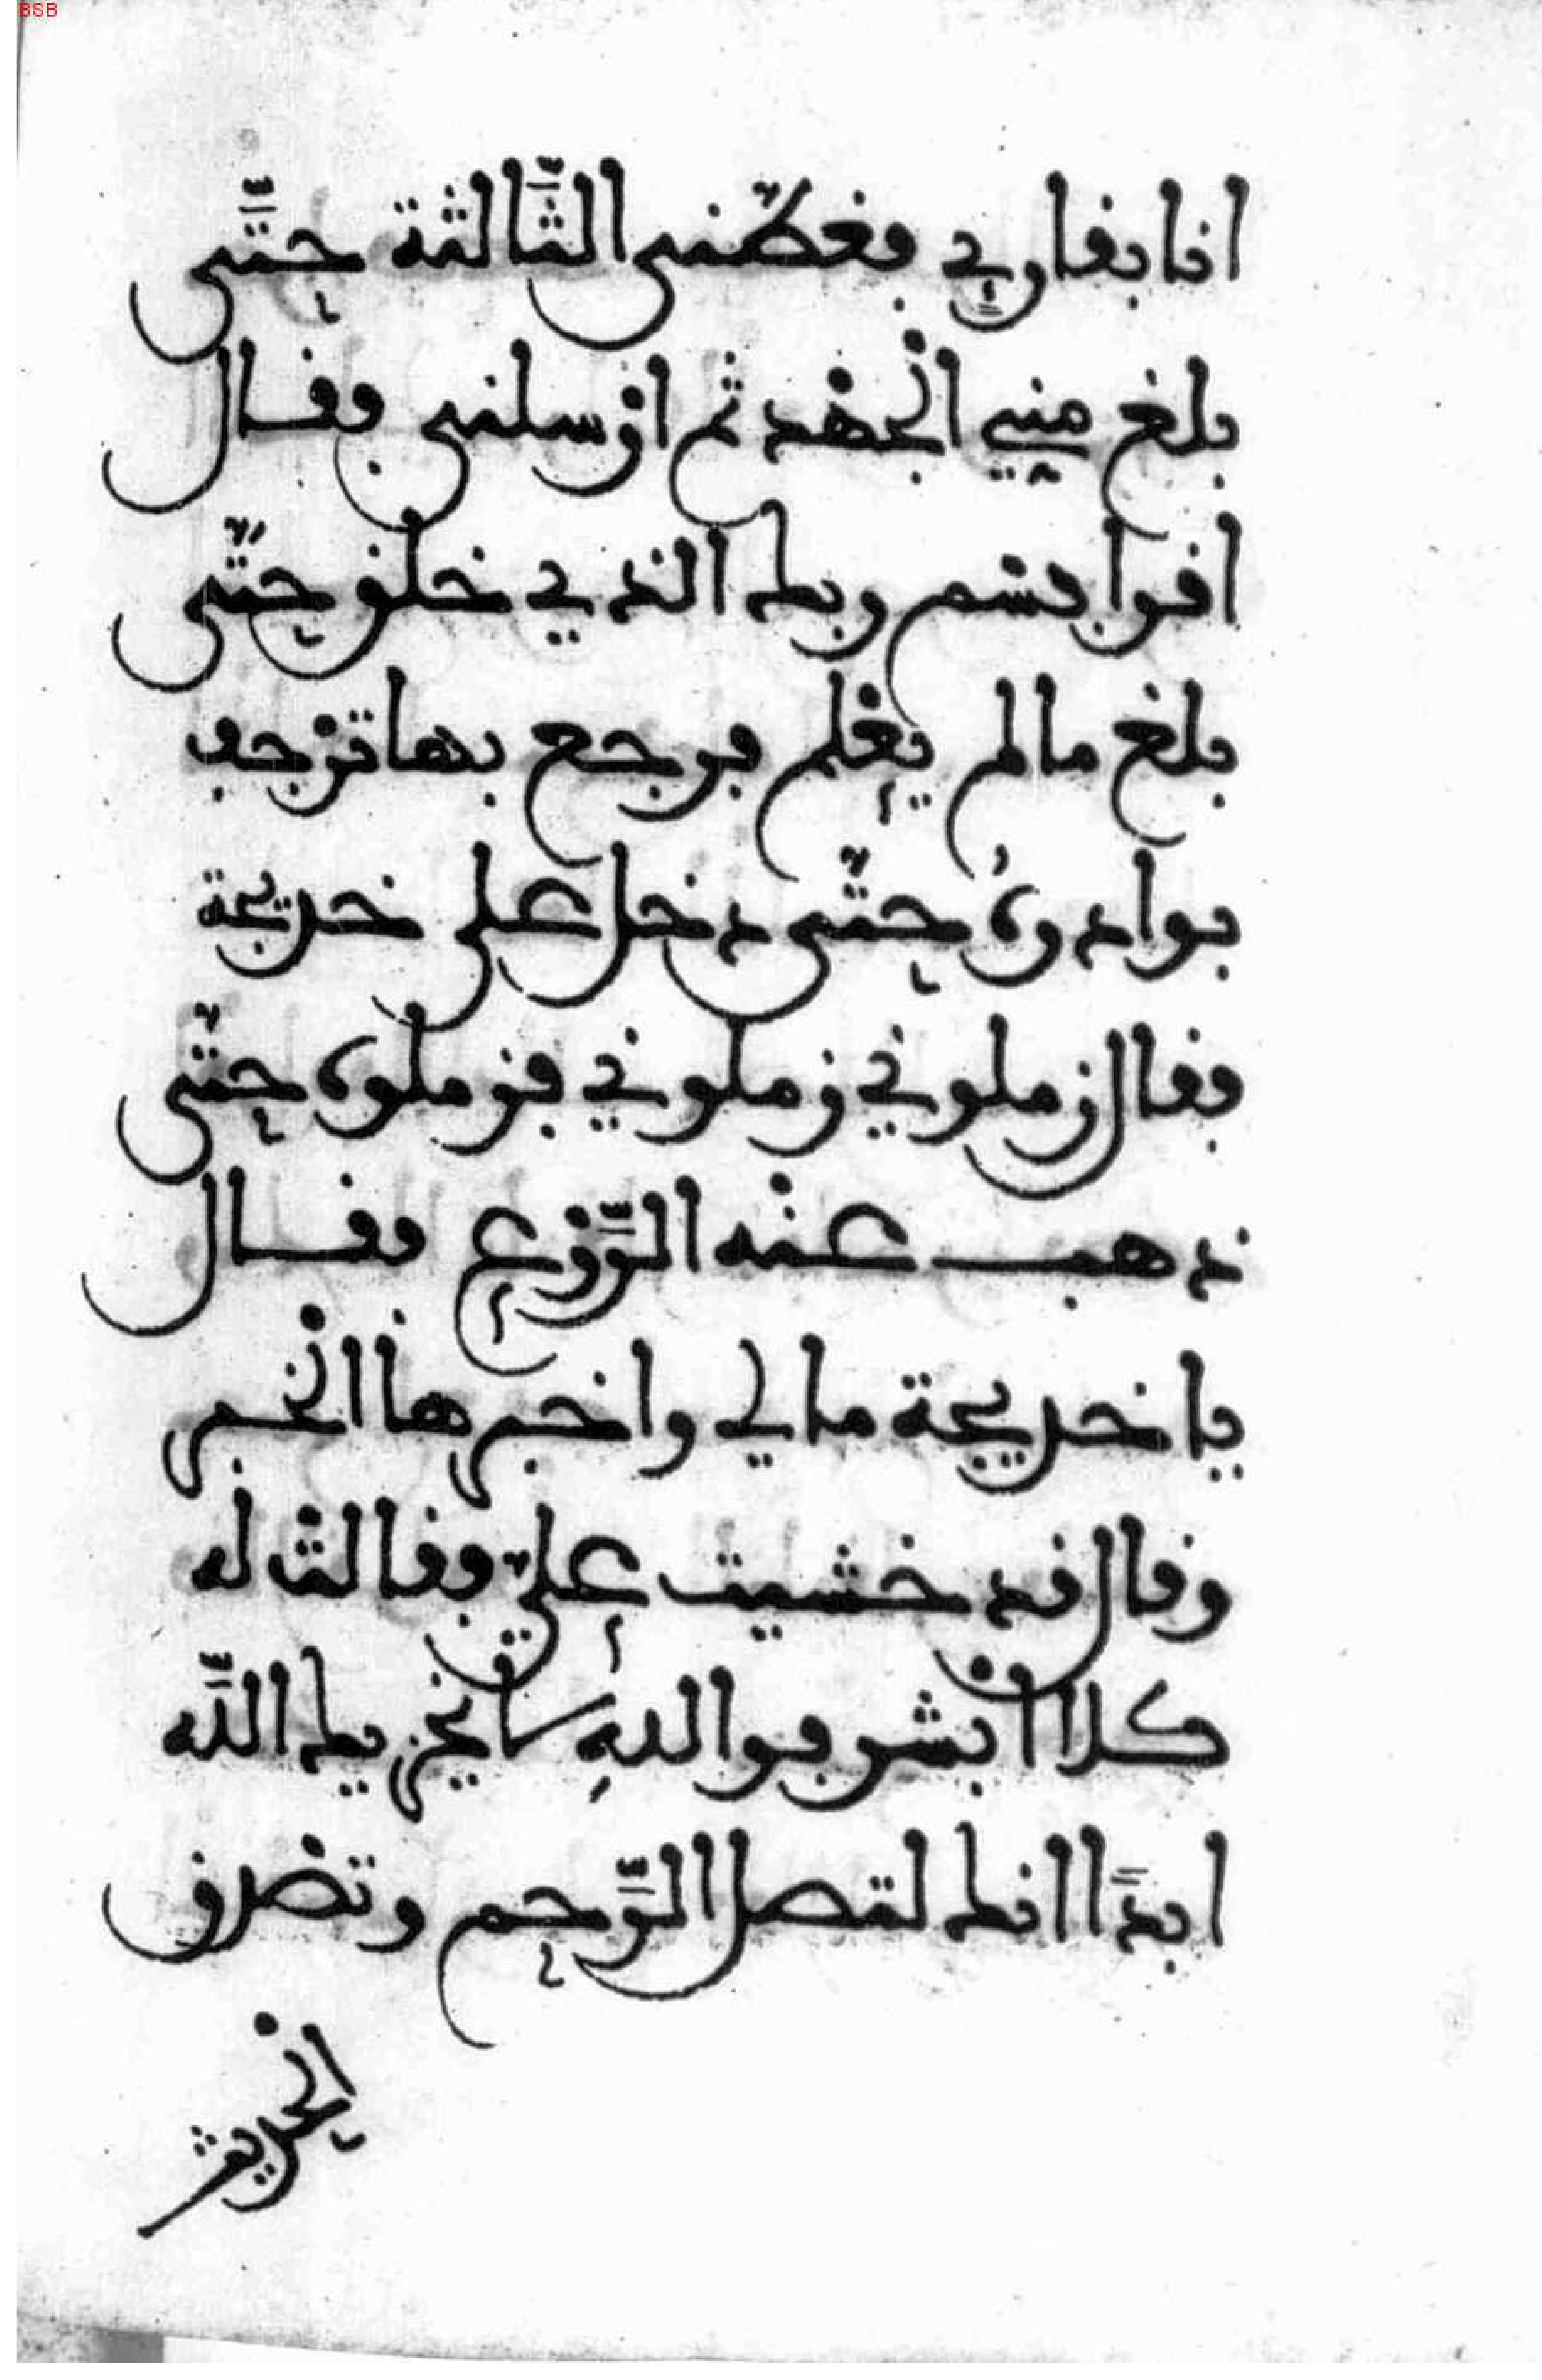 BSB
انا بقارئ فغطّني الثَّالثة حتَّى
بلغ مني الجهد ثم ارسلني فقال
اقرا بسم ربك الذي خلق حتّى
بلغ ما لم يعلم فرجع بها ترجف
بوادره حتّى دخل على خديجة
فقال زملوني زملوني فزملوه حتّى
ذهب عنه الرَّوع فقال
يا خديجة مالي واخبرها الخبر
وقال قد خشيت عليّ فقالت له
كلا ابشر فوالله لا يخزيك اللَّه
ابدًا انك لتصل الرَّحم وتصدق
الحديث